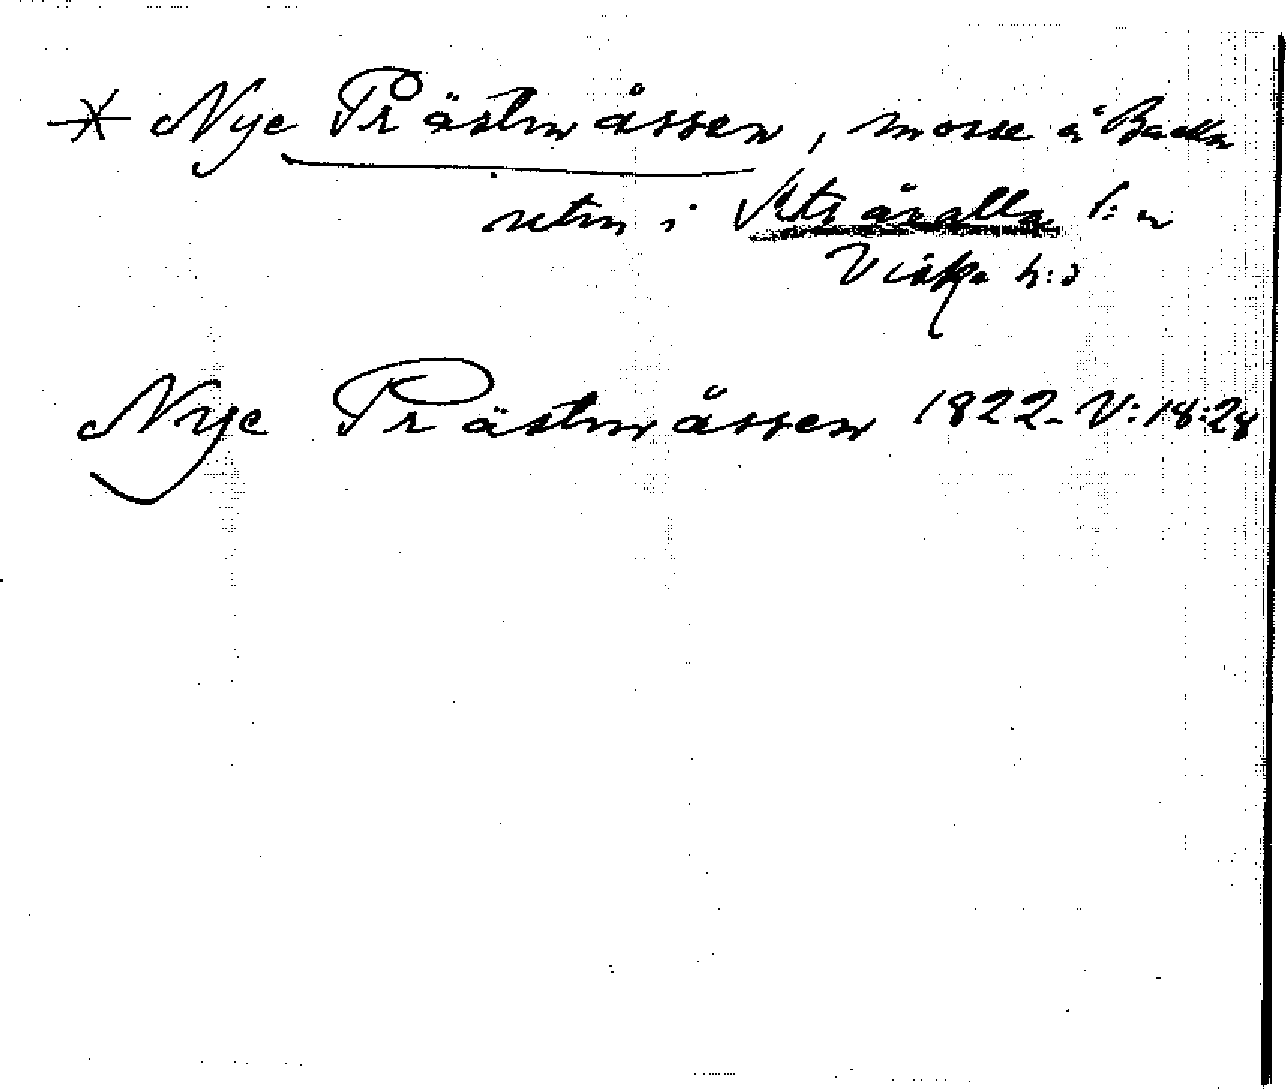 * Nye Prästmåssen, mosse å Backa
retn i Stråvalla s:n
Viske h:d
Nye Prästmåssen 1822 - V:18:28